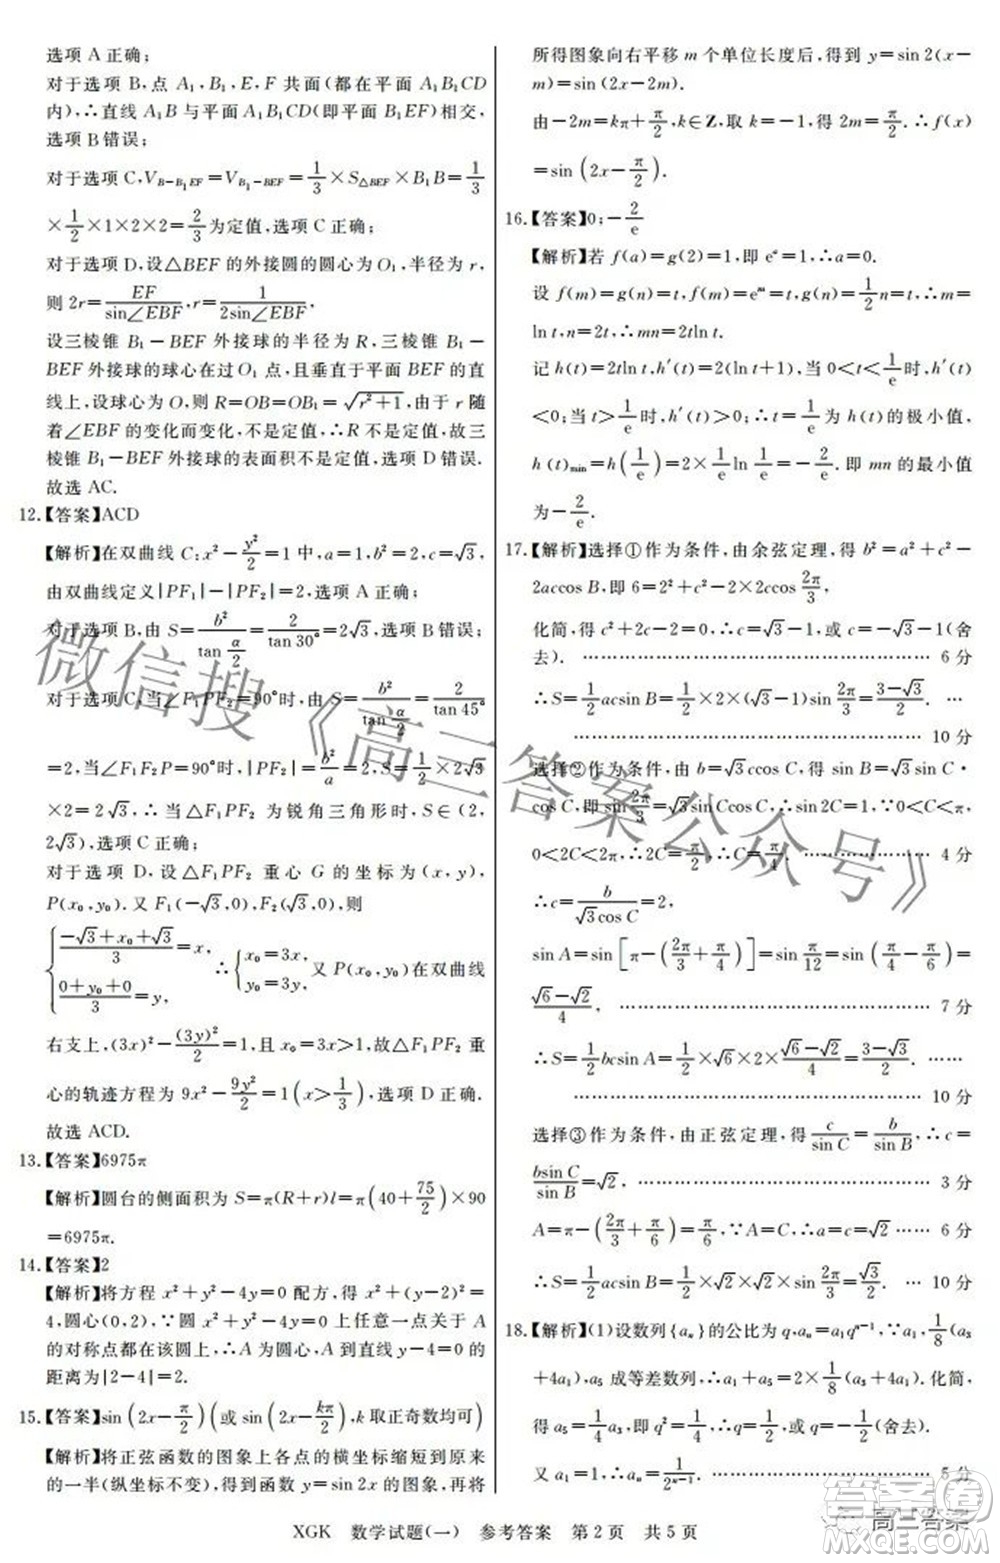 选项 A 正确;
对于选项 B,点 A₁,B₁,E,F 共面(都在平面 A₁B₁CD
内),∴直线 A₁B 与平面 A₁B₁CD(即平面 B₁EF)相交,
选项 B 错误;
对于选项 C,V_{B-B₁EF}=V_{B₁-BEF}=1/3×S_{△BEF}×B₁B=1/3
×1/2×1×2×2=2/3为定值,选项 C 正确;
对于选项 D,设△BEF 的外接圆的圆心为 O₁,半径为 r,
则 2r=EF/sin∠EBF,r=1/2sin∠EBF,
设三棱锥 B₁-BEF 外接球的半径为 R,三棱锥 B₁-
BEF 外接球的球心在过 O₁ 点,且垂直于平面 BEF 的直
线上,设球心为 O,则 R=OB=OB₁=√(r²+1),由于 r 随
着∠EBF 的变化而变化,不是定值,∴R 不是定值,故三
棱锥 B₁-BEF 外接球的表面积不是定值,选项 D 错误.
故选 AC.
12.【答案】ACD
【解析】在双曲线 C:x²-y²/2=1 中,a=1,b²=2,c=√3,
由双曲线定义|PF₁|-|PF₂|=2,选项 A 正确;
对于选项 B,由 S=b²/tan(α/2)=2/tan 30°=2√3,选项 B 错误;
对于选项 C,当∠F₁PF₂=90°时,由 S=b²/tan(α/2)=2/tan 45°
=2,当∠F₁F₂P=90°时,|PF₂|=b²/a=2,∴S=1/2×2√3
×2=2√3,∴当△F₁PF₂ 为锐角三角形时,S∈(2,
2√3),选项 C 正确;
对于选项 D,设△F₁PF₂ 重心 G 的坐标为(x,y),
P(x₀,y₀).又 F₁(-√3,0),F₂(√3,0),则
{(-√3+x₀+√3)/3=x, (0+y₀+0)/3=y, ∴{x₀=3x, y₀=3y, 又 P(x₀,y₀)在双曲线
右支上,(3x)²-(3y)²/2=1,且 x₀=3x>1,故△F₁PF₂ 重
心的轨迹方程为 9x²-9y²/2=1(x>1/3),选项 D 正确.
故选 ACD.
13.【答案】6975π
【解析】圆台的侧面积为 S=π(R+r)l=π(40+75/2)×90
=6975π.
14.【答案】2
【解析】将方程 x²+y²-4y=0 配方,得 x²+(y-2)²=
4,圆心(0,2),∵圆 x²+y²-4y=0 上任意一点关于 A
的对称点都在该圆上,∴A 为圆心,A 到直线 y-4=0 的
距离为|2-4|=2.
15.【答案】sin(2x-π/2)(或 sin(2x-kπ/2),k 取正奇数均可)
【解析】将正弦函数的图象上各点的横坐标缩短到原来
的一半(纵坐标不变),得到函数 y=sin 2x 的图象,再将
所得图象向右平移 m 个单位长度后,得到 y=sin 2(x-
m)=sin (2x-2m).
由-2m=kπ+π/2,k∈Z,取 k=-1,得 2m=π/2.∴f(x)
=sin(2x-π/2).
16.【答案】0;-2/e
【解析】若 f(a)=g(2)=1,即 eᵃ=1,∴a=0.
设 f(m)=g(n)=t,f(m)=eᵐ=t,g(n)=1/2n=t,∴m=
ln t,n=2t,∴mn=2tln t.
记 h(t)=2tln t,h′(t)=2(ln t+1),当 0<t<1/e时,h′(t)
<0;当 t>1/e时,h′(t)>0;∴t=1/e为 h(t)的极小值,
h(t)min=h(1/e)=2×1/e ln 1/e=-2/e.即 mn 的最小值
为-2/e.
17.【解析】选择①作为条件,由余弦定理,得 b²=a²+c²-
2accos B,即 6=2²+c²-2×2×ccos 2π/3,
化简,得 c²+2c-2=0,∴c=√3-1,或 c=-√3-1(舍
去). …………………………………… 6 分
∴S=1/2acsin B=1/2×2×(√3-1)sin 2π/3=(3-√3)/2. …
…………………………………… 10 分
选择②作为条件,由 b=√3ccos C,得 sin B=√3sin C·
cos C,即 sin 2π/3=√3sin Ccos C,∴sin 2C=1,∵0<C<π,
0<2C<2π,∴2C=π/2,∴C=π/4. …………… 4 分
∴c=b/(√3cos C)=2,
sin A=sin[π-(2π/3+π/4)]=sin π/12=sin(π/4-π/6)=
(√6-√2)/4, …………………………………… 7 分
∴S=1/2bcsin A=1/2×√6×2×(√6-√2)/4=(3-√3)/2. ……
…………………………………… 10 分
选择③作为条件,由正弦定理,得c/sin C=b/sin B,∴c=
bsin C/sin B=√2 …………………………………… 3 分
A=π-(2π/3+π/6)=π/6,∵A=C,∴a=c=√2 …… 6 分
∴S=1/2acsin B=1/2×√2×√2×sin 2π/3=√3/2. … 10 分
18.【解析】(1)设数列{aₙ}的公比为 q,aₙ=a₁qⁿ⁻¹,∵a₁,1/8(a₃
+4a₁),a₅ 成等差数列,∴a₁+a₅=2×1/8(a₃+4a₁).化简,
得 a₅=1/4a₃,∴q²=1/4,∴q=1/2或 q=-1/2(舍去).
又 a₁=1,∴aₙ=1/2ⁿ⁻¹. …………………… 5 分
XGK 数学试题(一) 参考答案 第 2 页 共 5 页
微信搜《高三答案公众号》
高三答案
答案圈
MXQE.COM